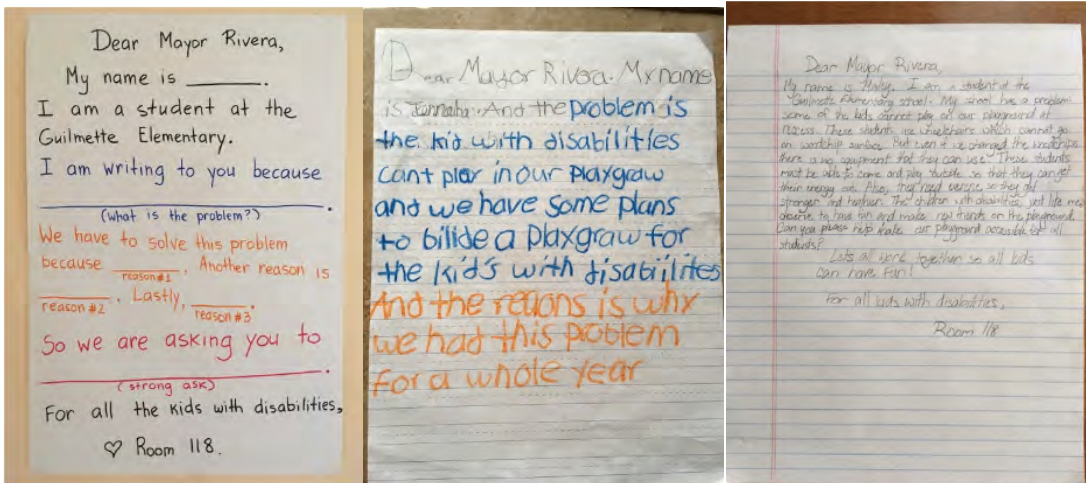 Dear Mayor Rivera,
My name is ________.
I am a student at the
Guilmette Elementary.
I am writing to you because
________.
(What is the problem?)
We have to solve this problem
because ________. Another reason is
reason #1
________. Lastly, ________.
reason #2 reason #3
So we are asking you to
________.
(strong ask)
For all the kids with disabilities,
♡ Room 118.
Dear Mayor Rivera. My name
is Jannaha. And the problem is
the kid with disabilities
cant plar in our playgraw
and we have some plans
to bilide a playgraw for
the kid's with disabiilites
And the reaons is why
we had this problem
for a whole year
Dear Mayor Rivera,
My name is . I am a student at the
Guilmette Elementary school. My school has a problem
some of the kids cannot play on our playground at
recess. These students use wheelchairs which cannot go
on woodchip surface. But even if we changed the woodchips
there is no equipment that they can use. These students
must be able to come and play outside so that they can get
their energy out. Also, they need exercise so they get
stronger and healthier. The children with disabilities, just like me,
deserve to have fun and make real friends on the playground.
Can you please help make our playground accessible for all
students?
Lets all work together so all kids
can have fun!
For all kids with disabilities,
Room 118